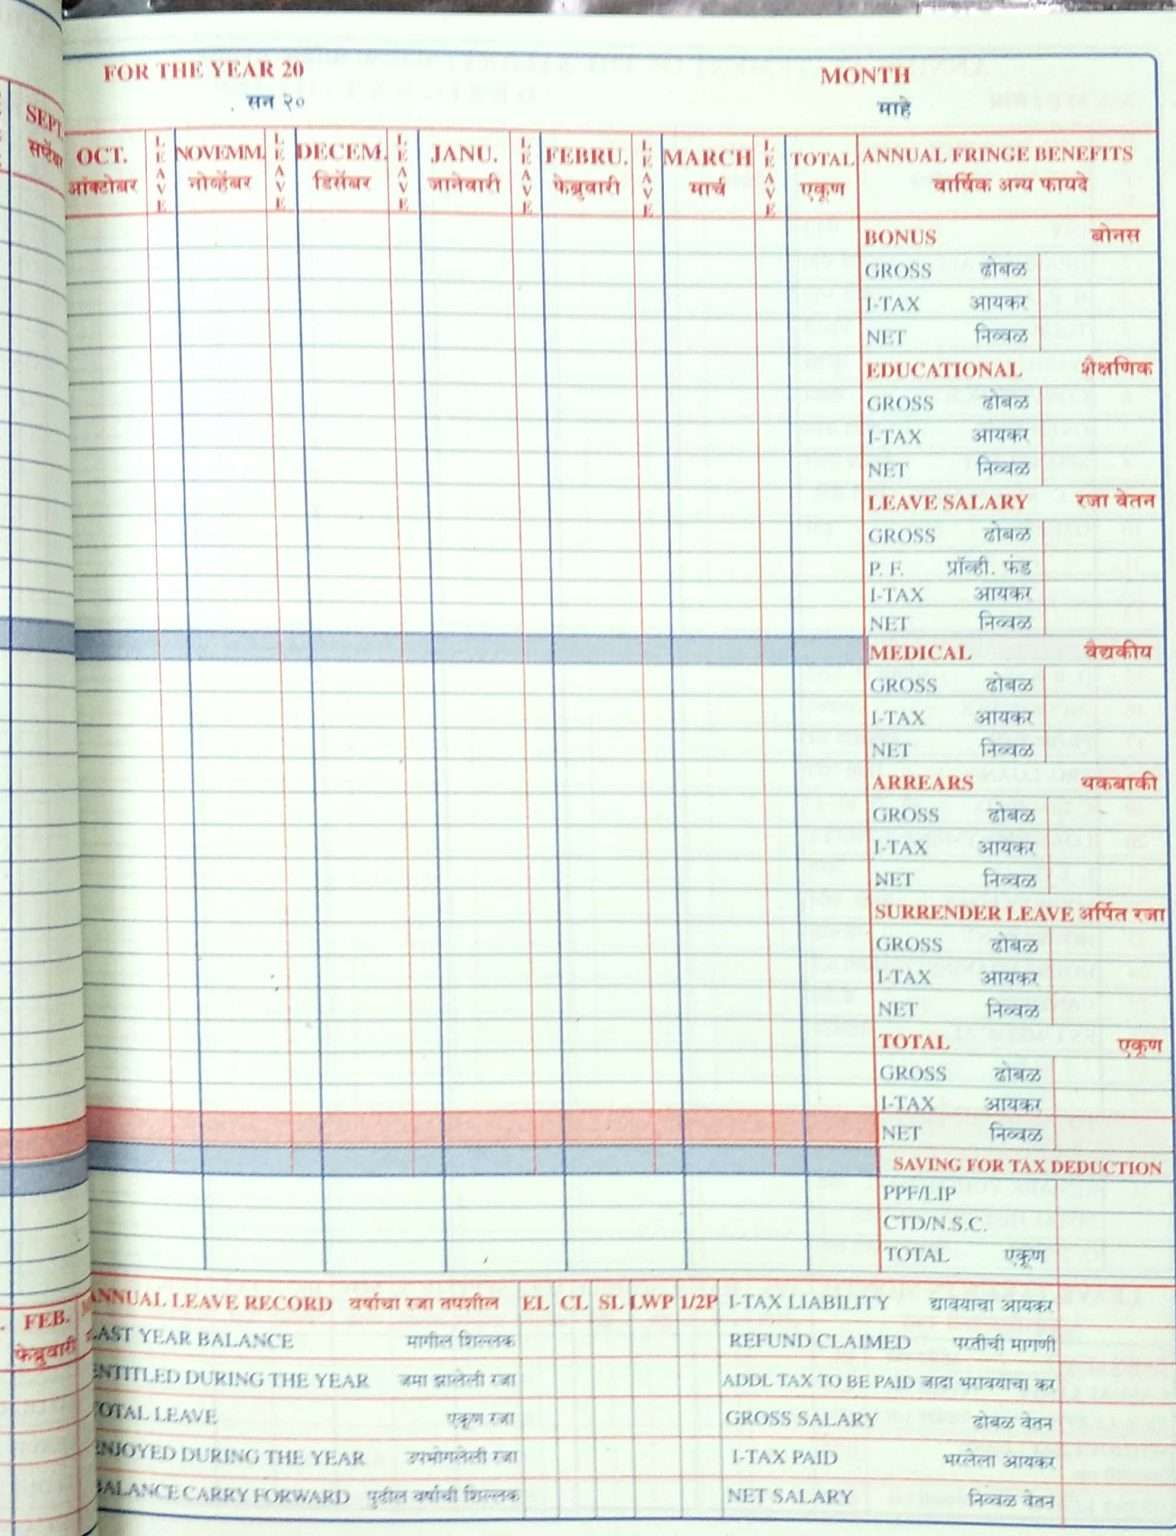 FOR THE YEAR 20 MONTH
सन २० माहे
OCT. LEAVE NOVEMM. LEAVE DECEM. LEAVE JANU. LEAVE FEBRU. LEAVE MARCH LEAVE TOTAL ANNUAL FRINGE BENEFITS
ऑक्टोबर नोव्हेंबर डिसेंबर जानेवारी फेब्रुवारी मार्च एकूण वार्षिक अन्य फायदे
SEPT.
सप्टेंबर
BONUS बोनस
GROSS ढोबळ
I-TAX आयकर
NET निव्वळ
EDUCATIONAL शैक्षणिक
GROSS ढोबळ
I-TAX आयकर
NET निव्वळ
LEAVE SALARY रजा वेतन
GROSS ढोबळ
P. F. प्रॉव्ही. फंड
I-TAX आयकर
NET निव्वळ
MEDICAL वैद्यकीय
GROSS ढोबळ
I-TAX आयकर
NET निव्वळ
ARREARS थकबाकी
GROSS ढोबळ
I-TAX आयकर
NET निव्वळ
SURRENDER LEAVE अर्पित रजा
GROSS ढोबळ
I-TAX आयकर
NET निव्वळ
TOTAL एकूण
GROSS ढोबळ
I-TAX आयकर
NET निव्वळ
SAVING FOR TAX DEDUCTION
PPF/LIP
CTD/N.S.C.
TOTAL एकूण
FEB.
फेब्रुवारी
ANNUAL LEAVE RECORD वर्षाचा रजा तपशील EL CL SL LWP 1/2P I-TAX LIABILITY द्यावयाचा आयकर
LAST YEAR BALANCE मागील शिल्लक REFUND CLAIMED परतीची मागणी
ENTITLED DURING THE YEAR जमा झालेली रजा ADDL TAX TO BE PAID जादा भरावयाचा कर
TOTAL LEAVE एकूण रजा GROSS SALARY ढोबळ वेतन
ENJOYED DURING THE YEAR उपभोगलेली रजा I-TAX PAID भरलेला आयकर
BALANCE CARRY FORWARD पुढील वर्षाची शिल्लक NET SALARY निव्वळ वेतन